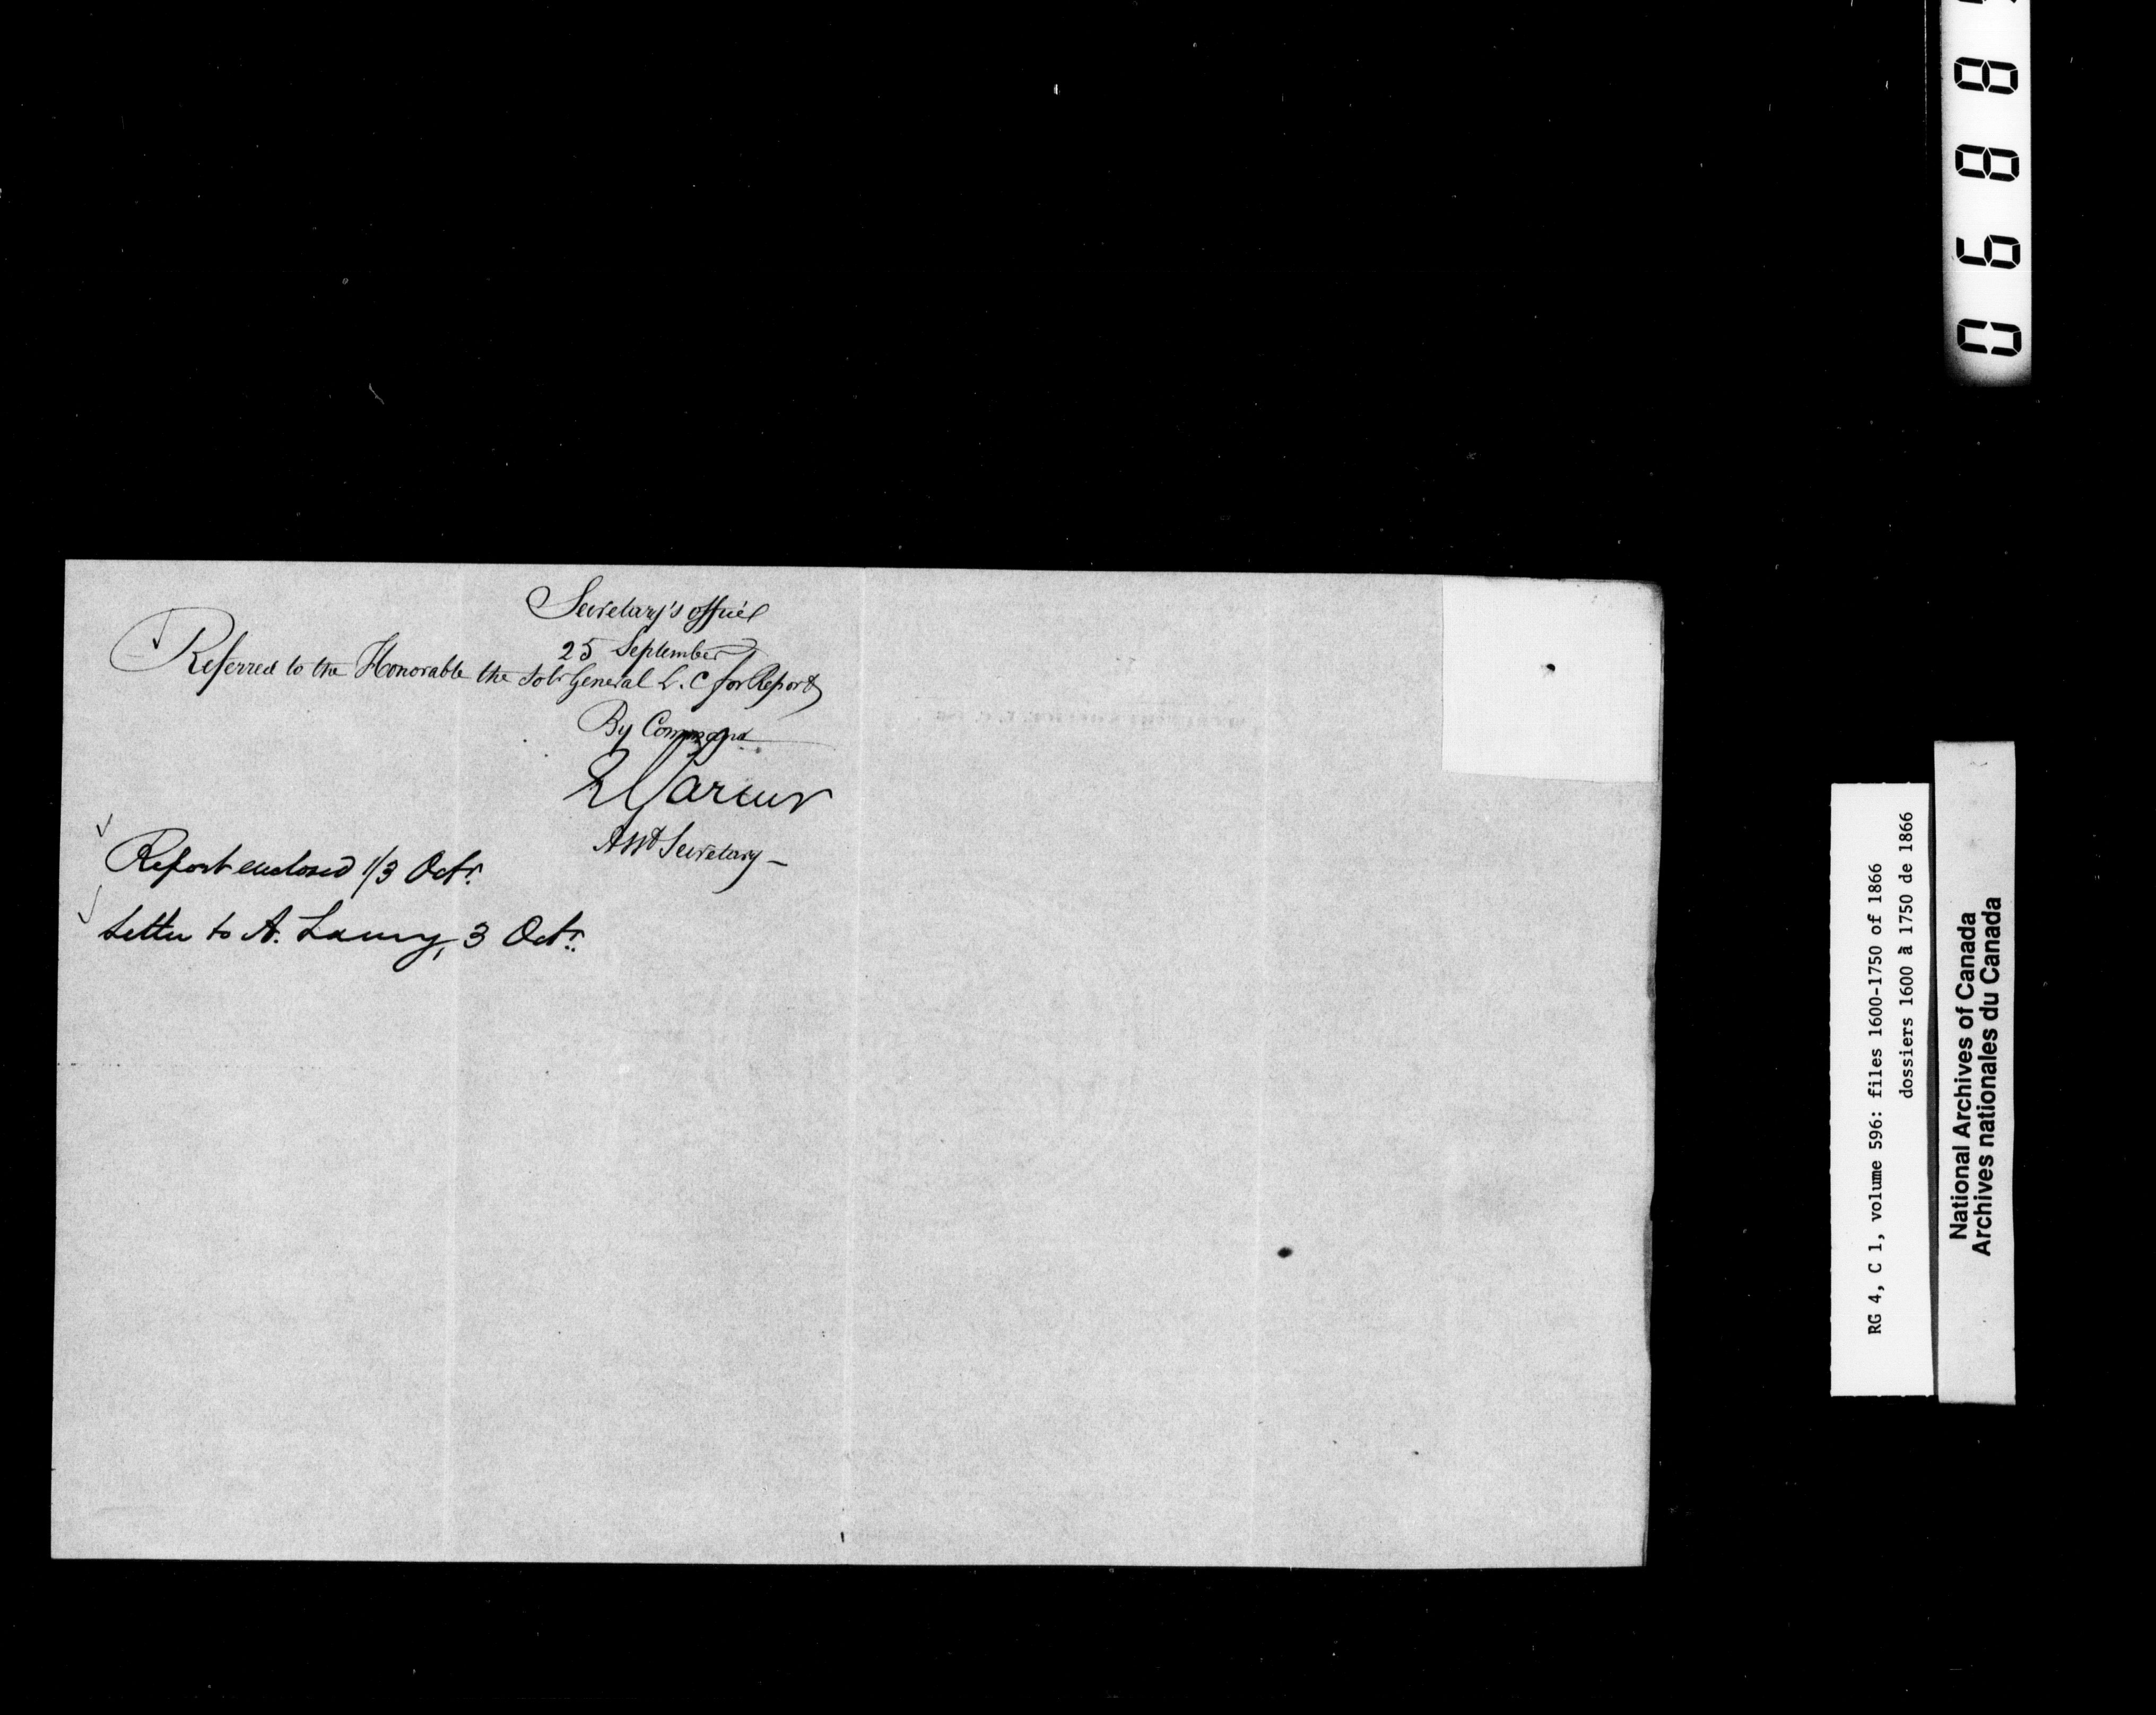 Secretary's office
25 September
Referred to the Honorable the Solr General L. C for Report
By Command
E Parent
Asst Secretary -
Report enclosed 1/3 Octr.
Letter to A. 3 Octr.
0688
RG 4, C 1, volume 596: files 1600-1750 of 1866
dossiers 1600 à 1750 de 1866
National Archives of Canada
Archives nationales du Canada